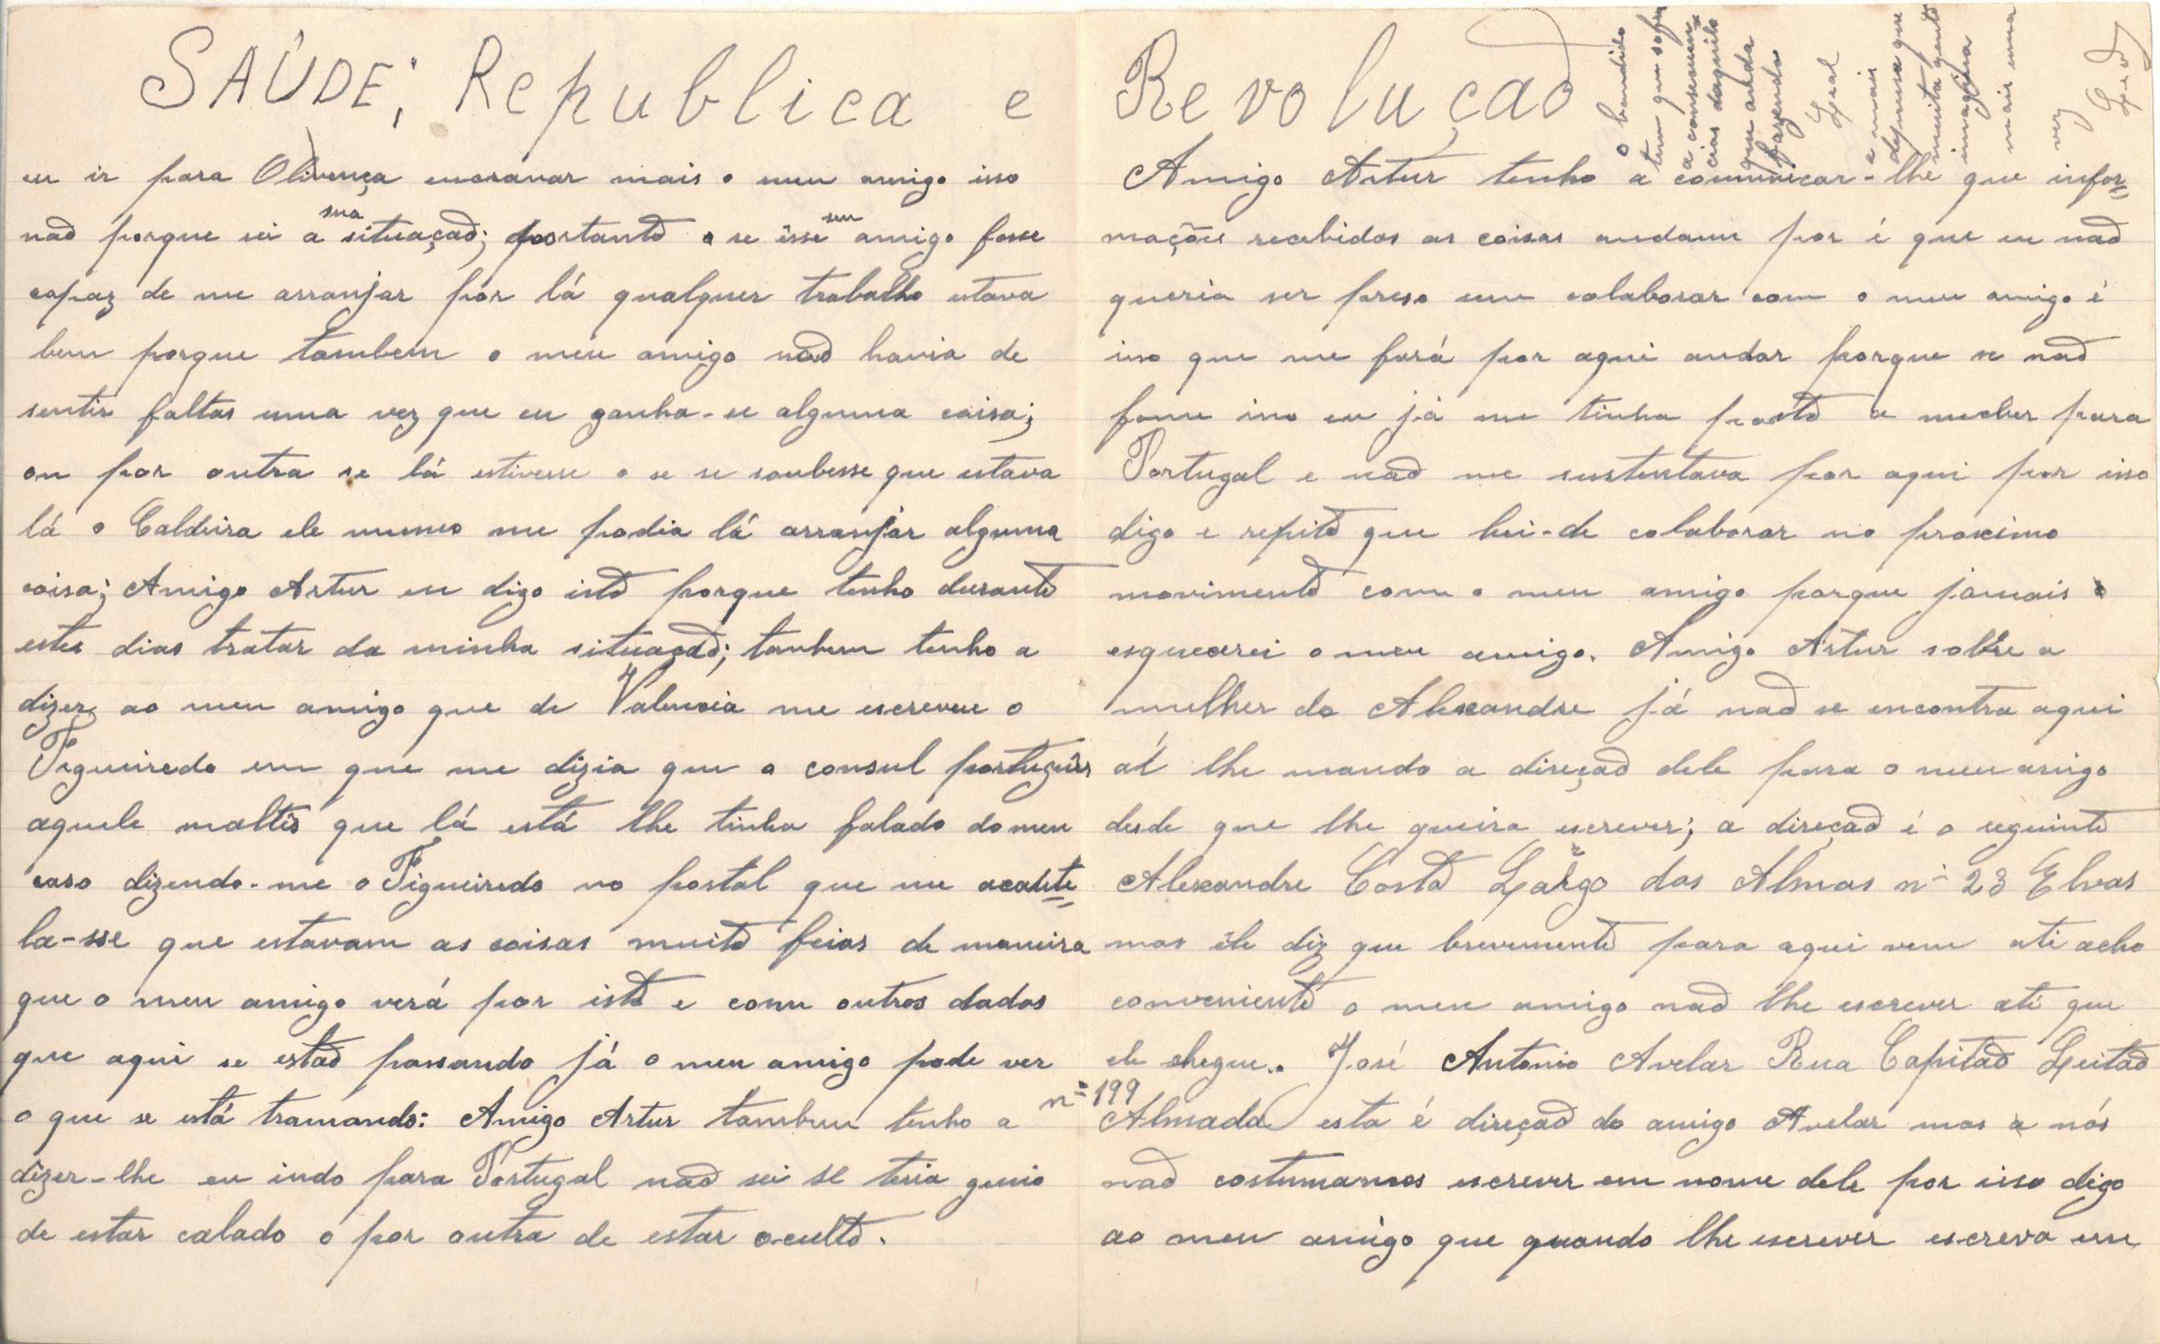 SAÚDE; Republica e Revoluçaõ
eu ir para Olivença encravar mais o meu amigo isso
naõ porque sei a sua situaçaõ; portantõ o se êsse seu amigo fosse
capaz de me arranjar por lá qualquer trabalho estava
bem porque tambem o meu amigo naõ havia de
sentir faltas uma vez que eu ganha-se alguma coisa;
ou por outra se lá estivesse o se se soubesse que estava
lá o Caldeira ele mesmo me podia lá arranjar alguma
coisa; Amigo Artur eu digo istõ porque tenho durantê
estes dias tratar da minha situaçaõ; tambem tenho a
dizer ao meu amigo que de Valencia me escreveu o
Figueiredo em que me dizia que o consul português
aquele maltês que lá está lhe tinha falado do meu
caso dizendo-me o Figueiredo no postal que me acaute=
la-sse que estavam as coisas muitõ feias de maneira
que o meu amigo verá por istõ e com outros dados
que aqui se estaõ passando já o meu amigo pode ver
o que se está tramando: Amigo Artur tambem tenho a
dizer-lhe eu indo para Portugal naõ sei se teria genio
de estar calado o por outra de estar ocultõ.
Amigo Artur tenho a comunicar-lhe que infor=
mações recebidas as coisas andam por é que eu naõ
queria ser preso sem colaborar com o meu amigo é
isso que me fará por aqui andar porque se naõ
fome isso eu já me tinha postõ a mecher para
Portugal e naõ me sustentava por aqui por isso
digo e repitõ que hei-de colaborar no proximo
movimentõ com o meu amigo porque jamais
esquecerei o meu amigo. Amigo Artur sobre a
mulher do Alexandre já naõ se encontra aqui
até lhe mando a direçaõ dele para o meu amigo
desde que lhe queira escrever; a direçaõ é o seguintê
Alexandre Costã Largo das Almas nº 23 Elvas
mas êle diz que brevementê para aqui vem até acho
convenientê o meu amigo naõ lhe escrever até que
ele chegue. José Antonio Avelar Rua Capitaõ Leitaõ
nº 199
Almada esta é direçaõ do amigo Avelar mas a nós
naõ costumamos escrever em nome dele por isso digo
ao meu amigo que quando lhe escrever escreva em
o bandido
tem que sofrer
a consequen=
cias daquilo
que anda
fazendo
Leal
e mais
do que
muita gente
imagina
mais uma
vez
Leal